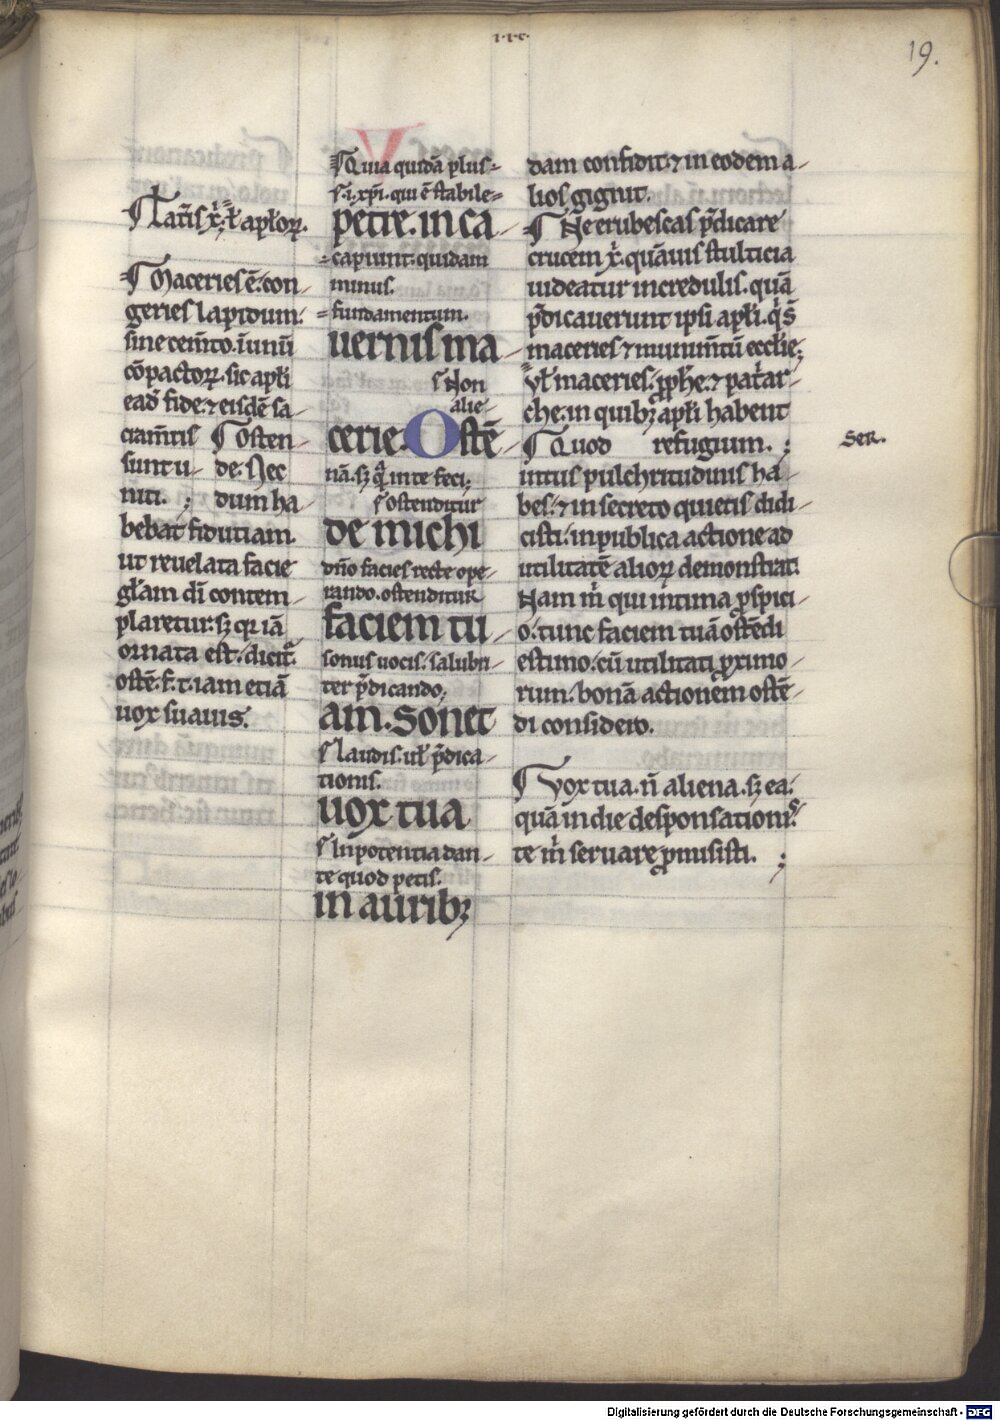 19.
¶ Lat̄is x̄. ł apłoꝝ.
¶ Maceries ē. con
geries lapidum.
sine cem̄to. ī unū
cōpactoꝝ. sic apłi
ead̄ fide. ⁊ eisdē sa
cram̄tis
sunt u
niti. ;
¶ Osten
de. Nec
dum ha
bebat fidutiam.
ut reuelata facie
głam dī contem
plaretur. sꝫ qꝛ iā
ornata est. dicit̄.
ostē. f. t. iam etiā
uox suauis.
¶ Quia quidā plus
s. i. xp̄i. qui ē stabile
petre. in ca
capiunt. quidam
minus.
fundamentum.
uernis ma
s Non
alie
cerie. Ostē
nā. sꝫ q̄ in te feci;
s ostenditur
de michi
dn̄o facies recte ope
rando. ostenditur
faciem tu
sonus uocis. salubri
ter p̄dicando;
am. Sonet
s laudis. uł p̄dica
tionis.
uox tua
s In potentia dan
te quod petis.
in auribꝫ
dam confidit. ⁊ in eodem a
lios gignit.
¶ Ne erubescas p̄dicare
crucem x̄. quāuis stulticia
uideatur incredulis. quā
p̄dicauerunt ipsi apłi. q̄s
maceries ⁊ munim̄tū eccłie;
Vł maceries. ꝓph̄e. ⁊ pat̄ar
che. in quibꝫ apłi habent
refugium. ;
¶ Quod
intus pulchritudinis ha
bes. ⁊ in secreto quietis didi
cisti. in publica actione ad
utilitatē alioꝝ demonstrat.
Nam m̄ qui intima ꝑspici
o. tunc faciem tuā ostēdi
estimo. cū utilitati ꝓximo
rum. bonā actionem ostē
di considero.
¶ Vox tua. n̄ aliena. sꝫ ea.
quā in die desponsationis
te m̄ seruare ꝓmisisti. ;
Ser.
Digitalisierung gefördert durch die Deutsche Forschungsgemeinschaft - DFG